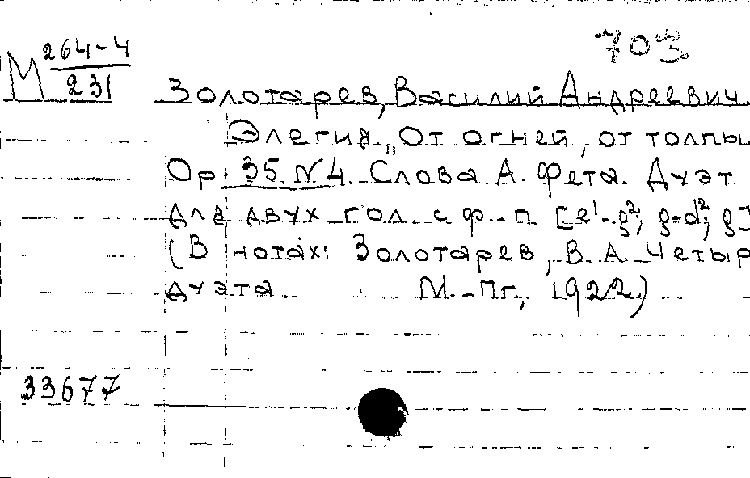 703
М 264-4
231
Золотарев, Василий Андреевич
Элегия „От огней, от толпы
Ор. 35 N4. Слова А. Фета. Дуэт
для двух гол. с ф.-п. [e¹-g²; g-d²; g
(В нотах: Золотарев, В. А. Четыр
дуэта. М.-Пг, 1922)
33677